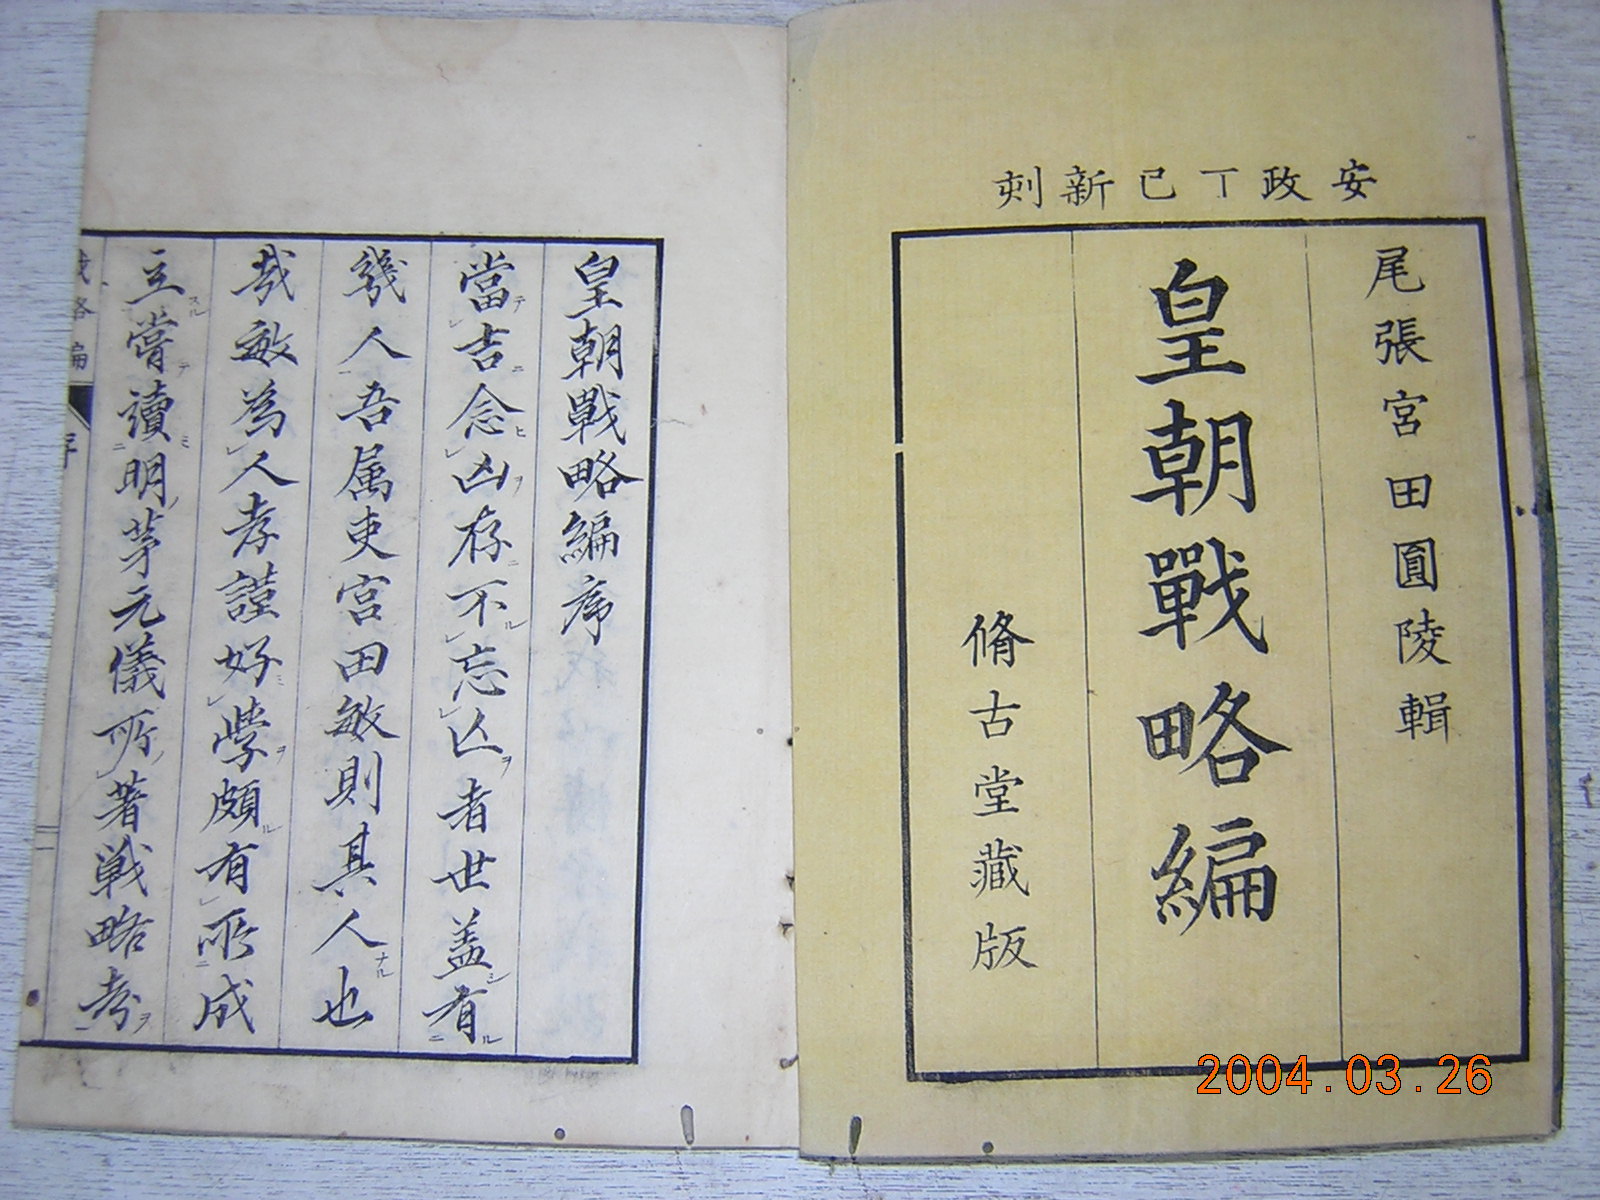 安政丁巳新刻
尾張宮田圓陵輯
皇朝戰略編
脩古堂藏版
皇朝戰略編序
當吉念凶存不忘亡者世盖有
幾人吾属吏宮田敏則其人也
哉敏為人孝謹好學頗有所成
立嘗讀明茅元儀所著戦略考
2004.03.26